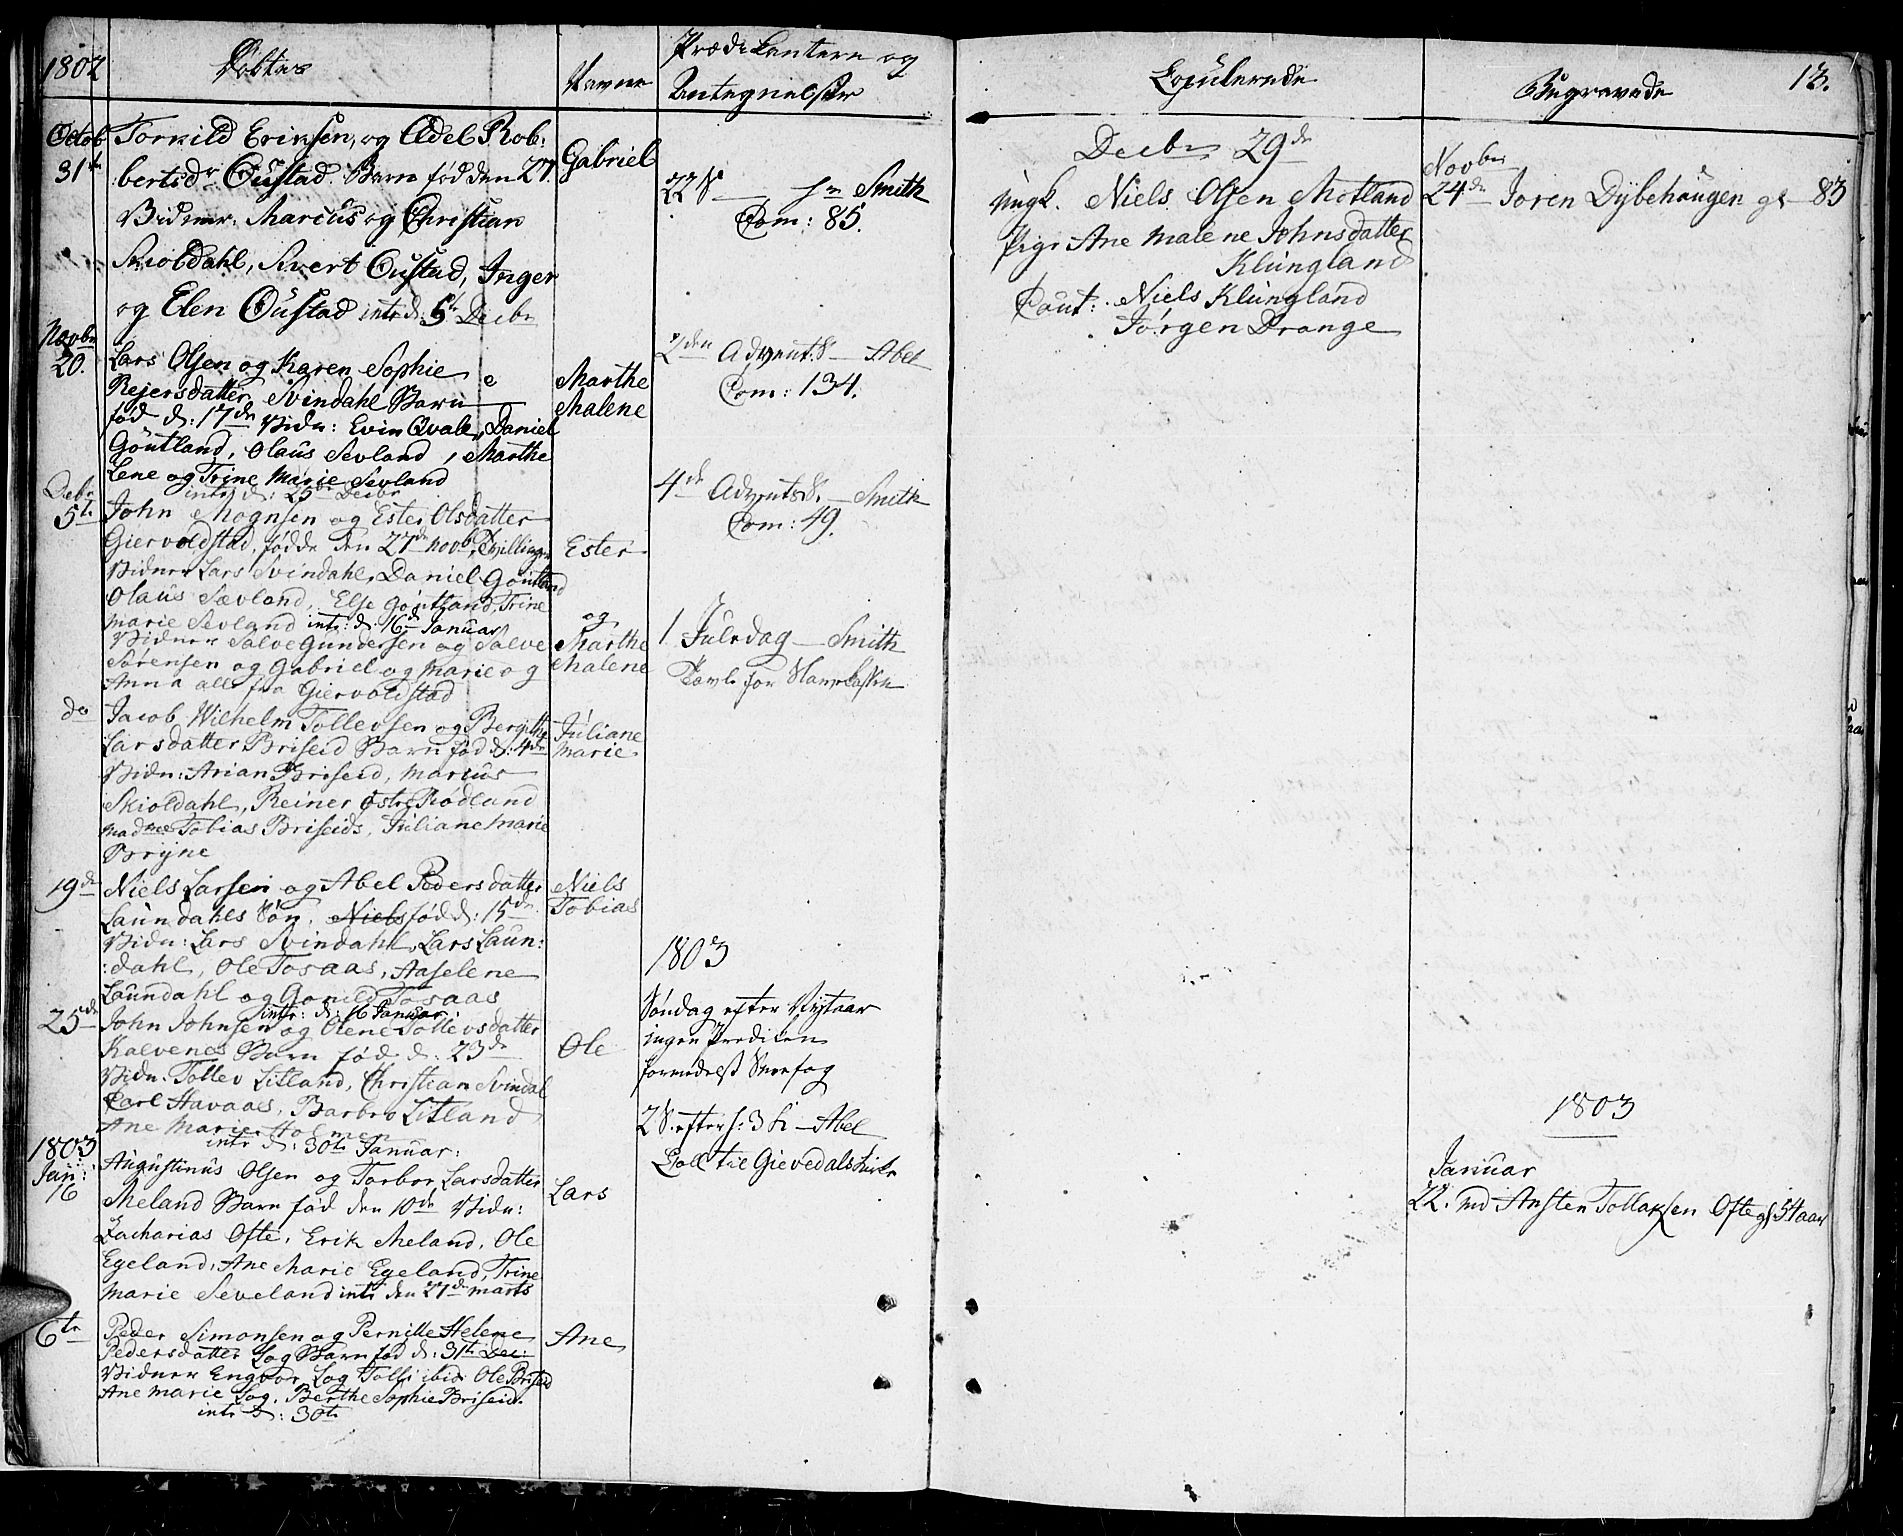 1802
Døbte
Navne
Prædikantere og
Antegnelser
Octob
31te
Torkild Eriksen, og Adel Rob:
bertsdr Oustad. Barn fød den 27.
Vidner. Marcus og Christian
Skioldahl, Sivert Oustad, Inger
og Elen Oustad intr d: 5te Decbr
Gabriel
Novbr
20.
Lars Olsen og Karen Sophie
Reiersdatter Svindahl Barn
fød d: 17de Vidn: Evin Qvale, Daniel
Göutland, Olaus Sevland, Marthe
Lene og Trine Marie Sevland
intr d: 25de Decbr
Marthe
Malene
Debr
5te
John Mognsen og Ester Olsdatter
Giervoldstad, fødde den 27de Novb. Tvillinger
Vidner Lars Svindahl, Daniel Göutland
Olaus Sævland, Else Göutland, Trine
Marie Sevland intr: d: 16de Januar
Vidner Salve Gundersen og Salve
Sørensen og Gabriel og Marie og
Anna alle fra Giervoldstad
Ester
og
Marthe
Malene
do
Jacob Wilhelm Tollevsen og Bergitte
Larsdatter Briseid Barn fød d: 4de
Vidn: Arian Briseid, Marcus
Skioldahl, Reiner Østre Rödland
Madme Tobias Briseids, Juliane Marie
Bryne
Juliane
Marie
19de
Niels Larsen og Abel Pedersdatter
Laundahls Søn. Niels fød d: 15de
Vidn: Lars Svindahl, Lars Laun:
:dahl, Ole Tosaas, Aaselene
Laundahl og Gonild Tosaas
intr: d: 16 Januar.
Niels
Tobias
25de
John Johnsen og Olene Tollevsdatter
Kalvenes Barn fød d: 23de
Vidn: Tollev Litland, Christian Svindal
Carl Havaas, Barbro Litland
Ane Marie Holmen
intr d: 30te Januar:
Ole
1803
Jan:
16
Augustinus Olsen og Torbor Larsdatter
Meland Barn fød den 10de Vidn:
Zacharias Ofte, Erik Meland, Ole
Egeland, Ane Marie Egeland, Trine
Marie Seveland intr den 27de Marts
Lars
6te
Peder Simonsen og Pernille Helene
Pedersdatter Log Barn fød d: 31te Dec:
Vidner Engvor Log Tolli ibid: Ole Briseid
Ane Marie Log, Berthe Sophie Briseid.
intr d: 30te
Ane
22 S hr Smith
Com: 85.
2den Advent: S Abel
Com: 134.
4de Advents S. Smith
Com: 49.
1 Juledag Smith
Tavle for
1803
Søndag efter Nytaar
ingen Prediken
formedelst Sneefog
2 S. efter h: 3 K Abel
Coll til Gievedals Kirke
Copulerede
Decbr 29de
Ungk. Niels Olsen Motland
Pige Ane Malene Johnsdatter
Klungland
Caut: Niels Klungland
Jørgen Drange
Begravede
13.
Novbr
24de Joren Dybehaugen gl 83
1803
Januar
22. Md Ansten Tollaksen Ofte gl. 54 aar